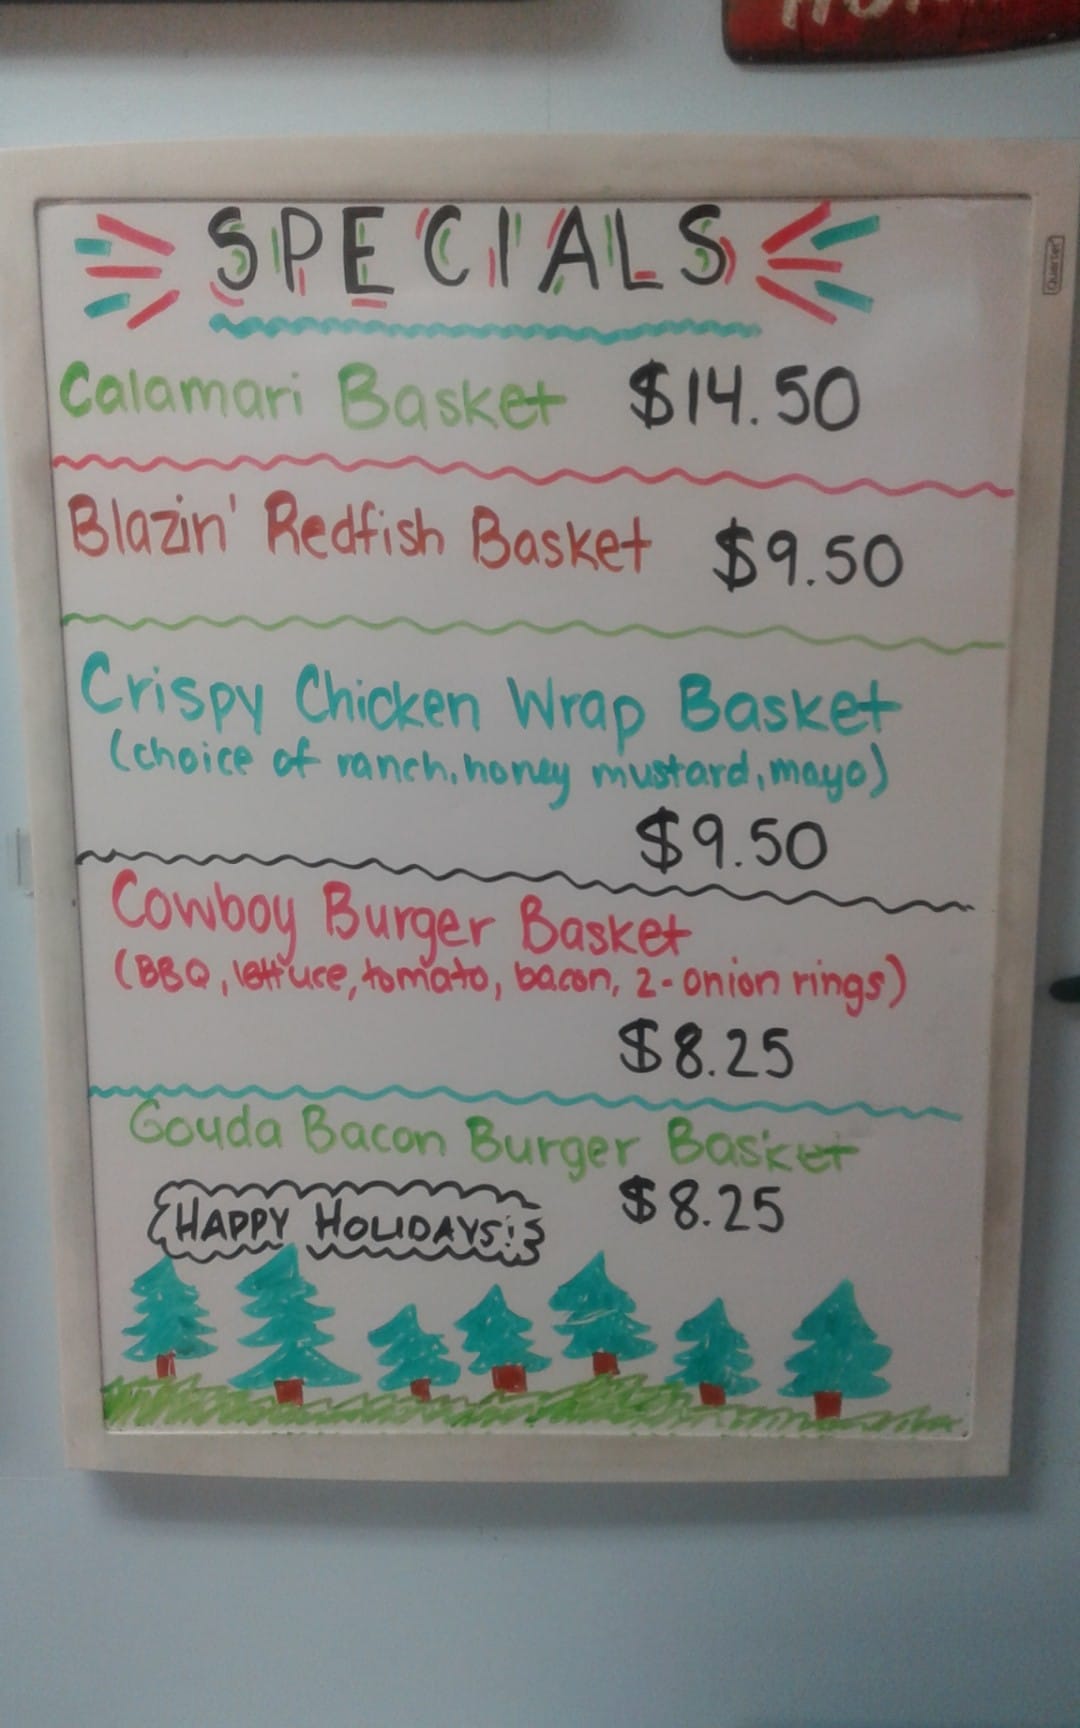 SPECIALS
Calamari Basket $14.50
Blazin' Redfish Basket $9.50
Crispy Chicken Wrap Basket
(choice of ranch, honey mustard, mayo)
$9.50
Cowboy Burger Basket
(BBQ, lettuce, tomato, bacon, 2-onion rings)
$8.25
Gouda Bacon Burger Basket
$8.25
HAPPY HOLIDAYS!
Quartet